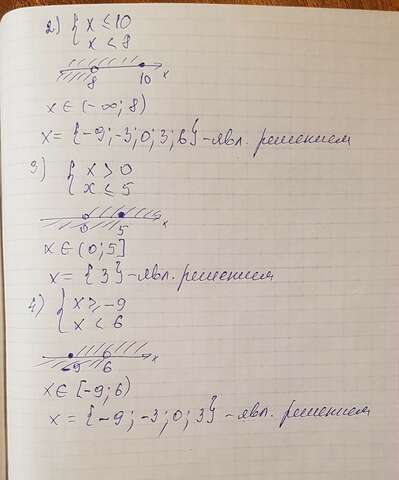 2) { x ≤ 10
x < 8
8 10 x
x ∈ (-∞; 8)
x = {-9; -3; 0; 3; 6} - явл. решением
3) { x > 0
x ≤ 5
0 5 x
x ∈ (0; 5]
x = {3} - явл. решением
4) { x ≥ -9
x < 6
-9 6 x
x ∈ [-9; 6)
x = {-9; -3; 0; 3} - явл. решением